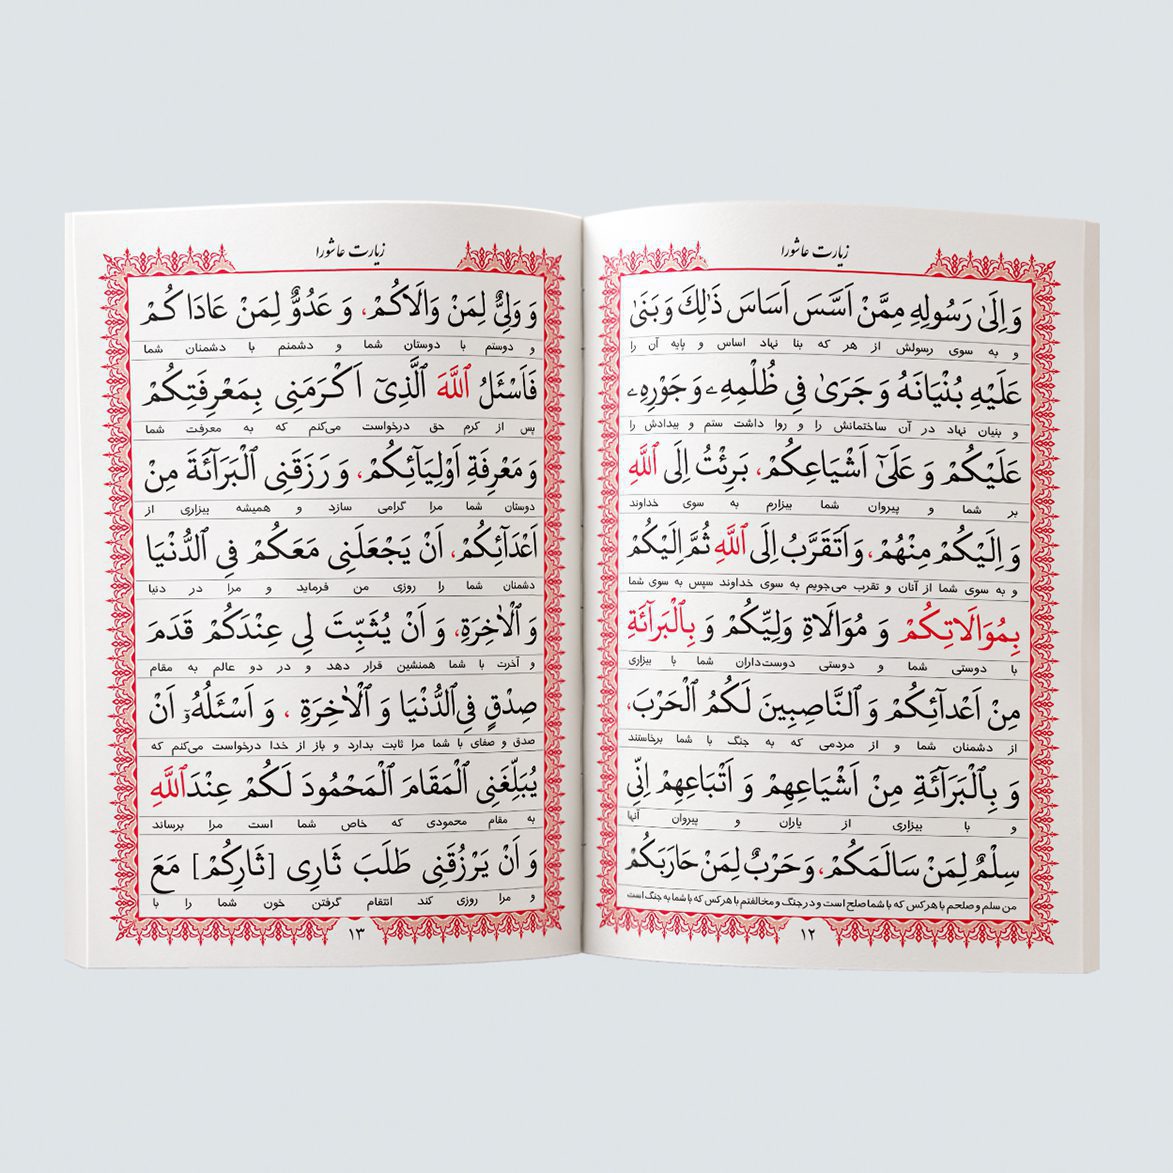 زیارت عاشورا
وَ اِلىٰ رَسُولِهِ مِمَّنْ اَسَّسَ اَسَاسَ ذٰلِكَ وَ بَنىٰ
و به سوی رسولش از هر که بنا نهاد اساس و پایه آن را
عَلَيْهِ بُنْيَانَهُ وَ جَرَىٰ فِي ظُلْمِهِۦ وَ جَوْرِهِۦ
و بنیان نهاد در آن ساختمانش را و روا داشت ستم و بیدادش را
عَلَيْكُمْ وَ عَلَىٰٓ اَشْيَاعِكُمْ، بَرِئْتُ اِلَى ٱللَّهِ
بر شما و پیروان شما بیزارم به سوی خداوند
وَ اِلَيْكُمْ مِنْهُمْ، وَ اَتَقَرَّبُ اِلَى ٱللَّهِ ثُمَّ اِلَيْكُمْ
و به سوی شما از آنان و تقرب می‌جویم به سوی خداوند سپس به سوی شما
بِمُوَالَاتِكُمْ وَ مُوَالَاةِ وَلِيِّكُمْ وَ بِٱلْبَرَآئَةِ
با دوستی شما و دوستی دوست‌داران شما با بیزاری
مِنْ اَعْدَآئِكُمْ وَ ٱلنَّاصِبِينَ لَكُمُ ٱلْحَرْبَ،
از دشمنان شما و از مردمی که به جنگ با شما برخاستند
وَ بِٱلْبَرَآئَةِ مِنْ اَشْيَاعِهِمْ وَ اَتْبَاعِهِمْ اِنِّي
و با بیزاری از یاران و پیروان آنها
سِلْمٌ لِمَنْ سَالَمَكُمْ، وَ حَرْبٌ لِمَنْ حَارَبَكُمْ
من سلم و صلحم با هر کس که با شما صلح است و در جنگ و مخالفتم با هر کس که با شما به جنگ است
۱۲
زیارت عاشورا
وَ وَلِيٌّ لِمَنْ وَالَاكُمْ، وَ عَدُوٌّ لِمَنْ عَادَاكُمْ
و دوستم با دوستان شما و دشمنم با دشمنان شما
فَاَسْئَلُ ٱللَّهَ ٱلَّذِىٓ اَكْرَمَنِى بِمَعْرِفَتِكُمْ
پس از کرم حق درخواست می‌کنم که به معرفت شما
وَ مَعْرِفَةِ اَوْلِيَآئِكُمْ، وَ رَزَقَنِى ٱلْبَرَآئَةَ مِنْ
دوستان شما مرا گرامی سازد و همیشه بیزاری از
اَعْدَآئِكُمْ، اَنْ يَجْعَلَنِى مَعَكُمْ فِى ٱلدُّنْيَا
دشمنان شما را روزی من فرماید و مرا در دنیا
وَ ٱلْاٰخِرَةِ، وَ اَنْ يُثَبِّتَ لِى عِنْدَكُمْ قَدَمَ
و آخرت با شما همنشین قرار دهد و در دو عالم به مقام
صِدْقٍ فِى ٱلدُّنْيَا وَ ٱلْاٰخِرَةِ ، وَ اَسْئَلُهُۥٓ اَنْ
صدق و صفای با شما مرا ثابت بدارد و باز از خدا درخواست می‌کنم که
يُبَلِّغَنِى ٱلْمَقَامَ ٱلْمَحْمُودَ لَكُمْ عِنْدَ ٱللَّهِ
به مقام محمودی که خاص شما است مرا برساند
وَ اَنْ يَرْزُقَنِى طَلَبَ ثَارِى [ثَارِكُمْ] مَعَ
و مرا روزی کند انتقام گرفتن خون شما را با
۱۳